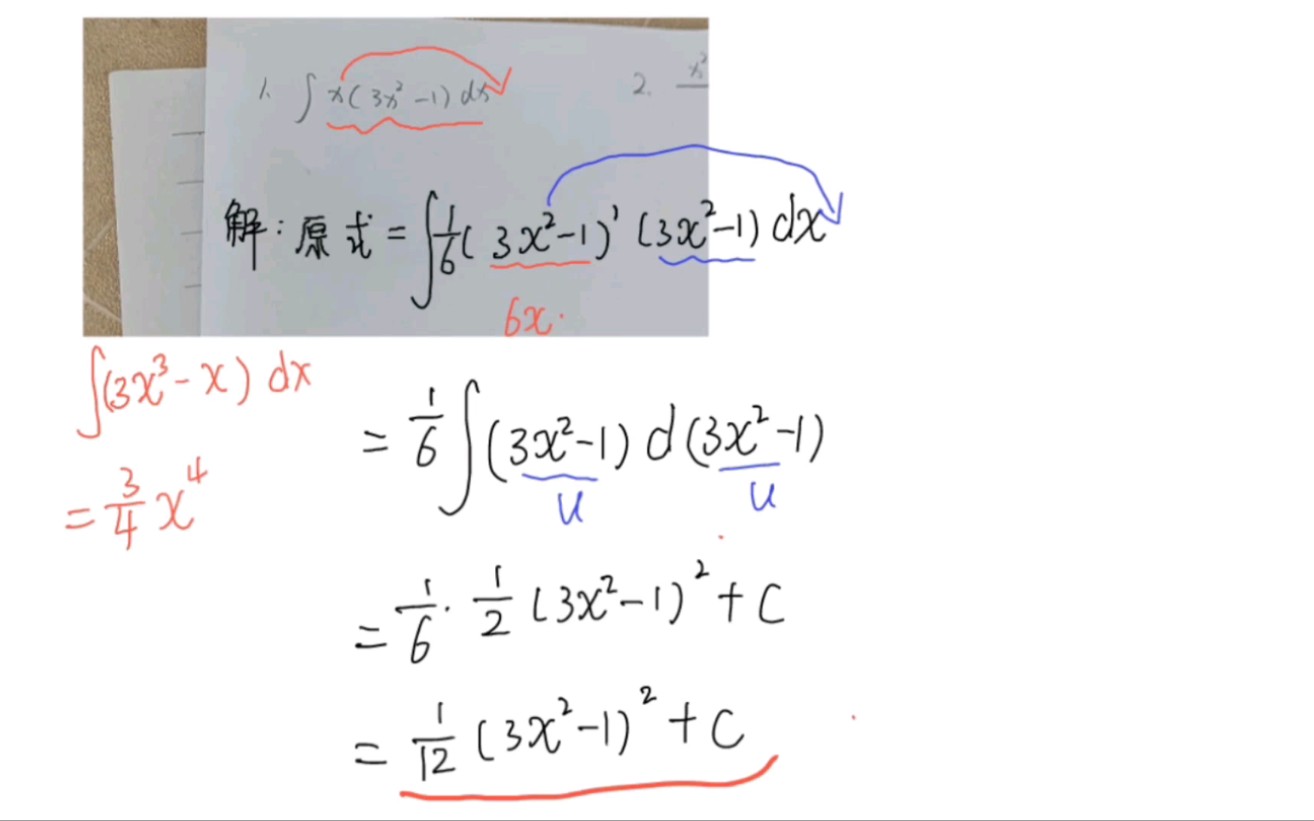 1. ∫ x(3x²-1) dx
2. x²
解：原式 = ∫ 1/6 (3x²-1)' (3x²-1) dx
6x.
∫(3x³-x) dx
= 1/6 ∫ (3x²-1) d(3x²-1)
u u
= 3/4 x⁴
= 1/6 · 1/2 (3x²-1)² + C
= 1/12 (3x²-1)² + C